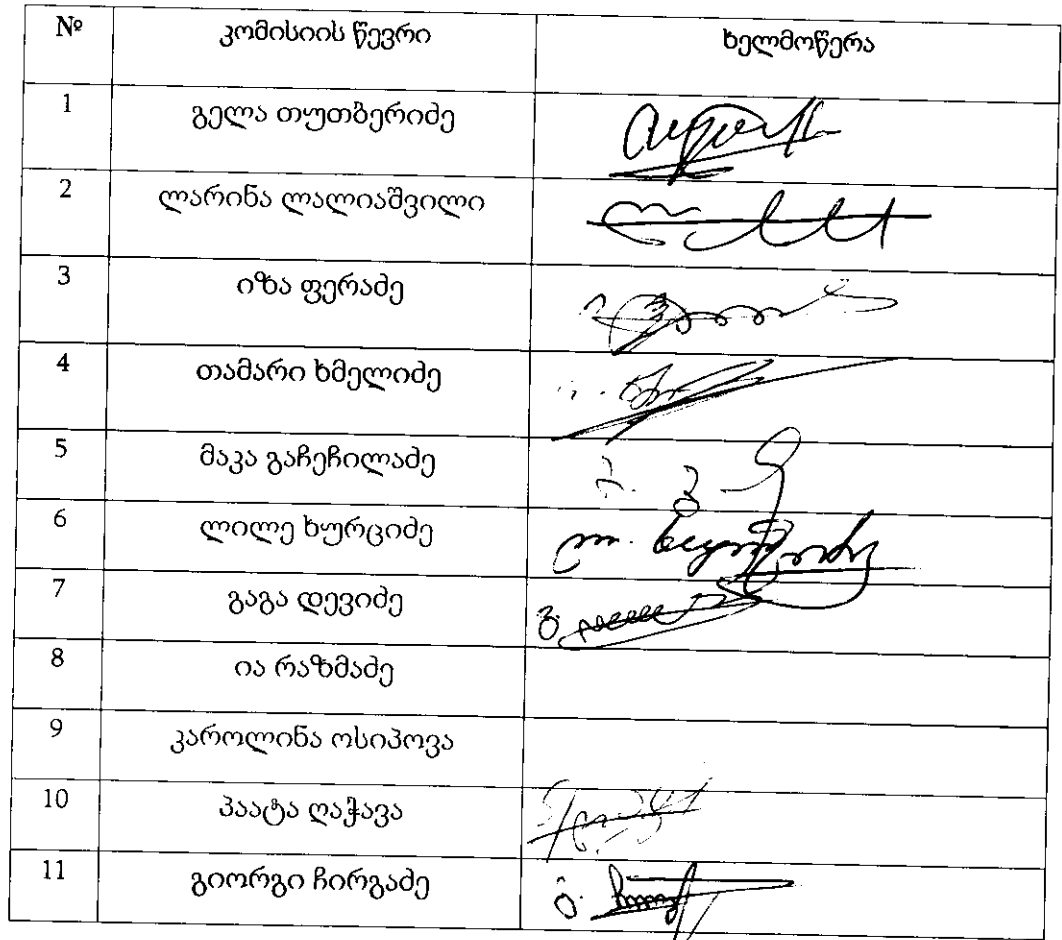 № კომისიის წევრი ხელმოწერა
1 გელა თუთბერიძე
2 ლარინა ლალიაშვილი
3 იზა ფერაძე
4 თამარი ხმელიძე
5 მაკა გაჩეჩილაძე
6 ლილე ხურციძე
7 გაგა დევიძე
8 ია რაზმაძე
9 კაროლინა ოსიპოვა
10 პაატა ღაჭავა
11 გიორგი ჩირგაძე